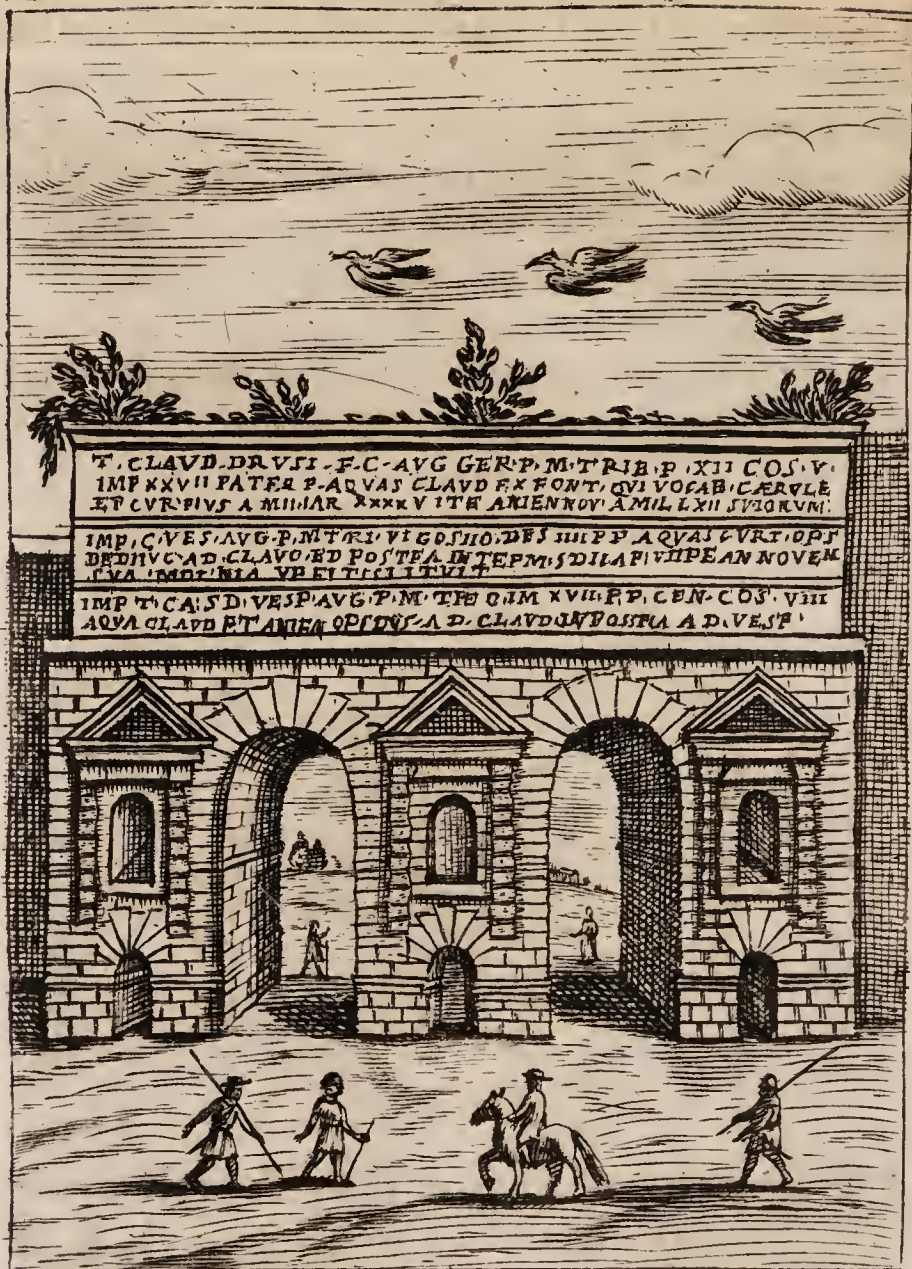 T. CLAVD. DRVSI. F. C. AVG GER. P. M. TRIB. P. XII COS. V.
IMP XXVII PATER P. AQVAS CLAVD EX FONT. QVI VOCAB. CÆRVLE
ET CVR. PIVS A MILIAR XXXXV ITE ANIEN NOV. A MIL LXII SVIORVM.
IMP. C. VES. AVG. P. M. T. R. VI COS DES IIII P P AQVAS CVRT. OPS
DEDIIVC. AD. CLAVO. ED POSTEA. INTEPM. S DILAPI. VIIPE AN NOVEM
SVA
IMP T. CA. S D. VESP. AVG. P. M. XVII P. P. CEN. COS. VIII
AQVA CLAVD ET ANIEN A D. CLAVD POSTEA A D. VESP.